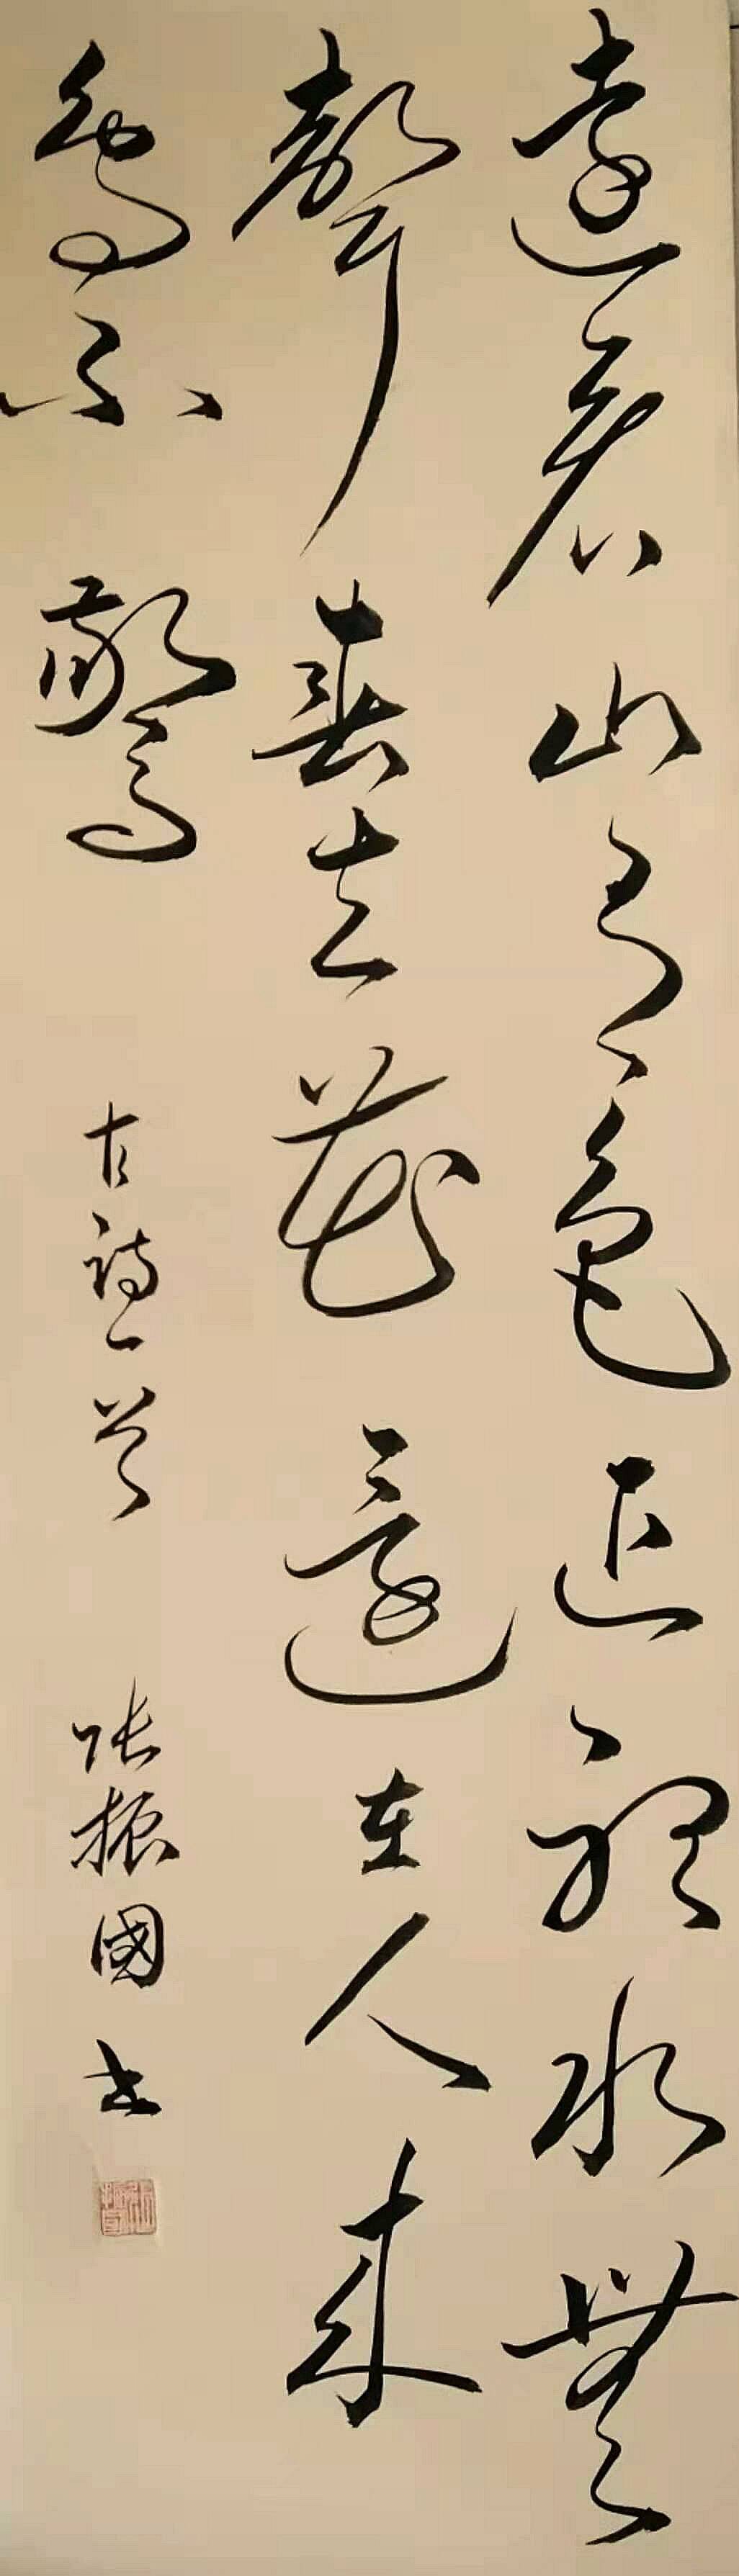 遠看山有色近聽水無
聲春去花還在人來
鳥不驚
古詩一首 張振國书